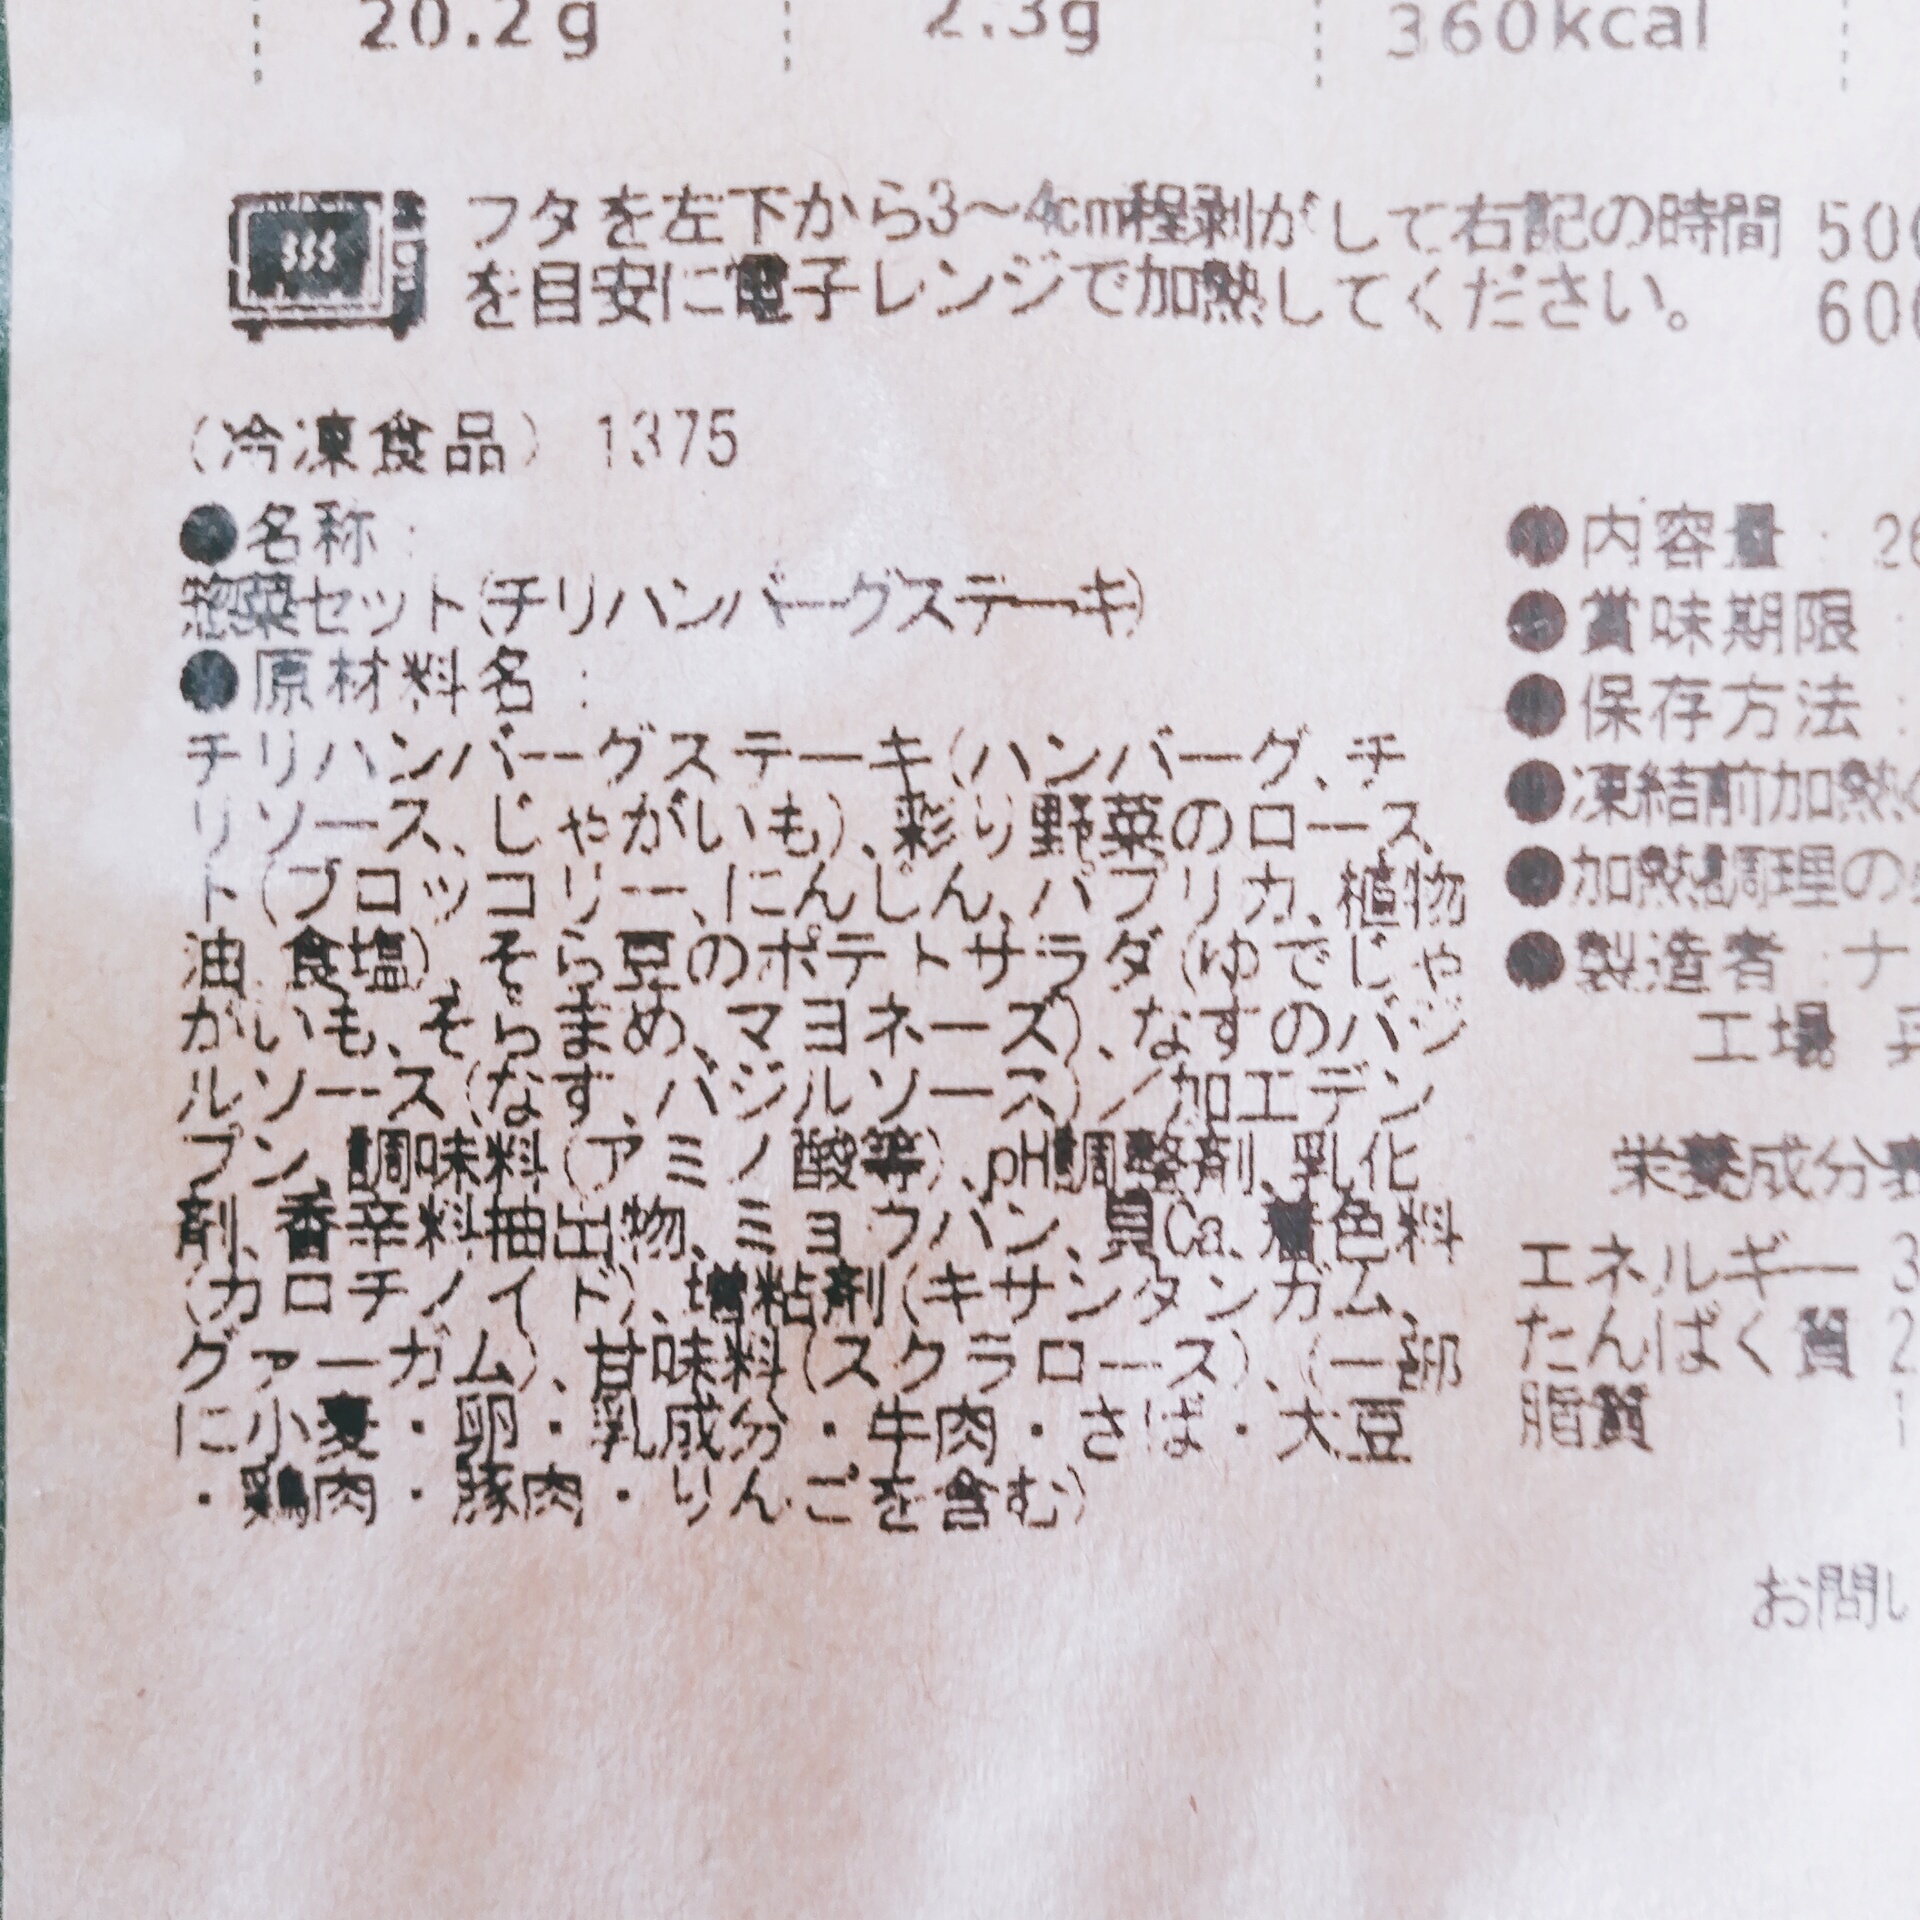 20.2g 2.3g 360kcal
フタを左下から3〜4cm程剥がして右記の時間
を目安に電子レンジで加熱してください。
（冷凍食品） 1375
●名称：
惣菜セット(チリハンバーグステーキ)
●原材料名：
チリハンバーグステーキ(ハンバーグ、チ
リソース、じゃがいも)、彩り野菜のロース
ト(ブロッコリー、にんじん、パプリカ、植物
油、食塩)、そら豆のポテトサラダ(ゆでじゃ
がいも、そらまめ、マヨネーズ)、なすのバジ
ルソース(なす、バジルソース)／加工デン
プン、調味料(アミノ酸等)、pH調整剤、乳化
剤、香辛料抽出物、ミョウバン、貝Ca、着色料
(カロチノイド)、増粘剤(キサンタンガム、
グァーガム)、甘味料(スクラロース)、(一部
に小麦・卵・乳成分・牛肉・さば・大豆
・鶏肉・豚肉・りんごを含む)
●内容量：
●賞味期限：
●保存方法：
●凍結前加熱
●加熱調理の
●製造者：ナ
工場
栄養成分表
エネルギー 3
たんぱく質 2
脂質 1
お問い